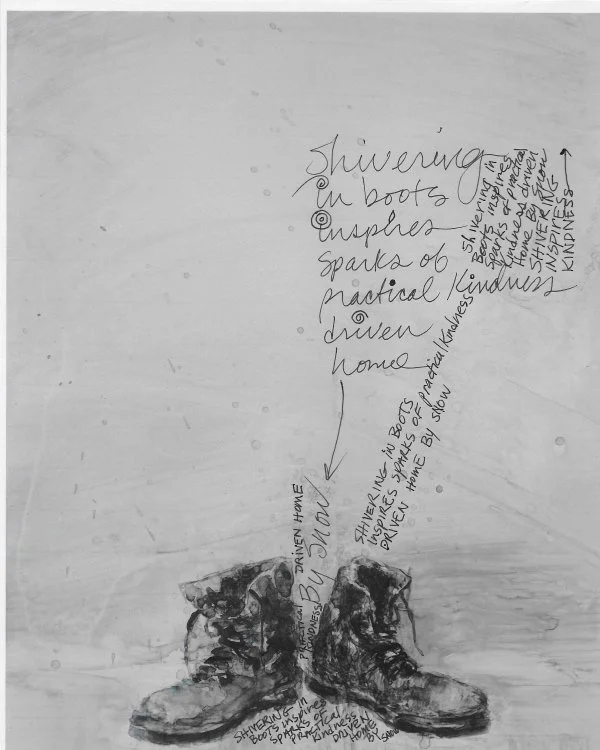 Shivering
in boots
inspires
sparks of
practical Kindness
driven
home
By Snow
Shivering in
Boots inspires
sparks of practical
Kindness driven
Home By Snow
SHIVERING
INSPIRES
KINDNESS
SHIVERING IN BOOTS
INSPIRES SPARKS OF practical Kindness
DRIVEN HOME BY SNOW
PRACTICAL
KINDNESS
DRIVEN HOME
SHIVERING in
BOOTS inspires
SPARKS OF
PRACTICAL
Kindness
DRIVEN
HOME
BY SNOW